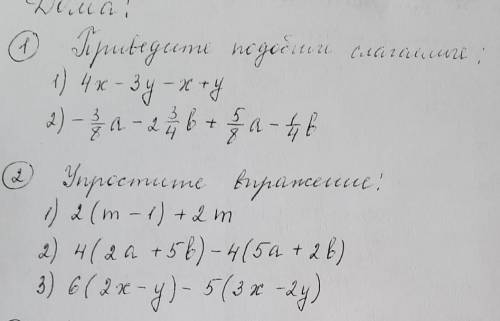 Дома:
① Приведите подобные слагаемые:
1) 4x - 3y - x + y
2) - 3/8 a - 2 3/4 b + 5/8 a - 1/4 b
② Упростите выражение:
1) 2(m - 1) + 2m
2) 4(2a + 5b) - 4(5a + 2b)
3) 6(2x - y) - 5(3x - 2y)